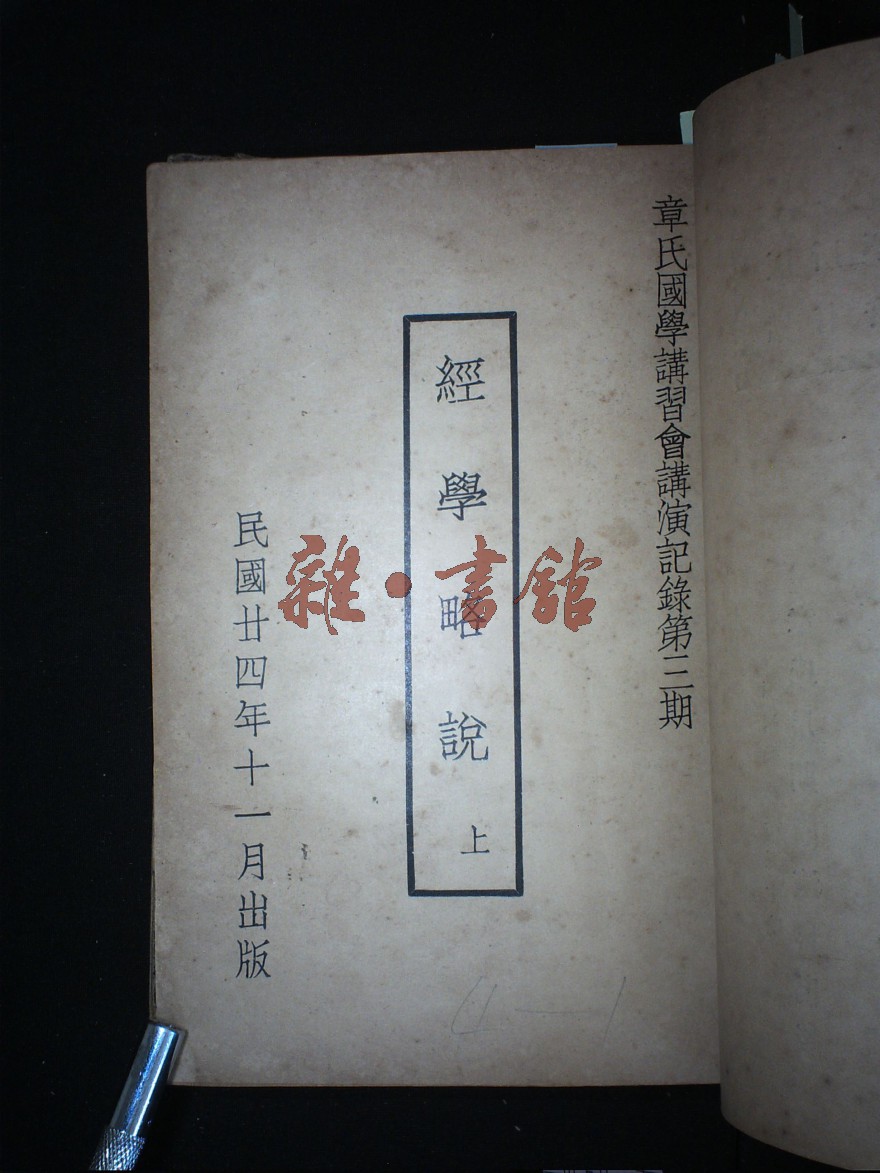 章氏國學講習會講演記錄第三期
經學略說 上
民國廿四年十一月出版
雜·書館